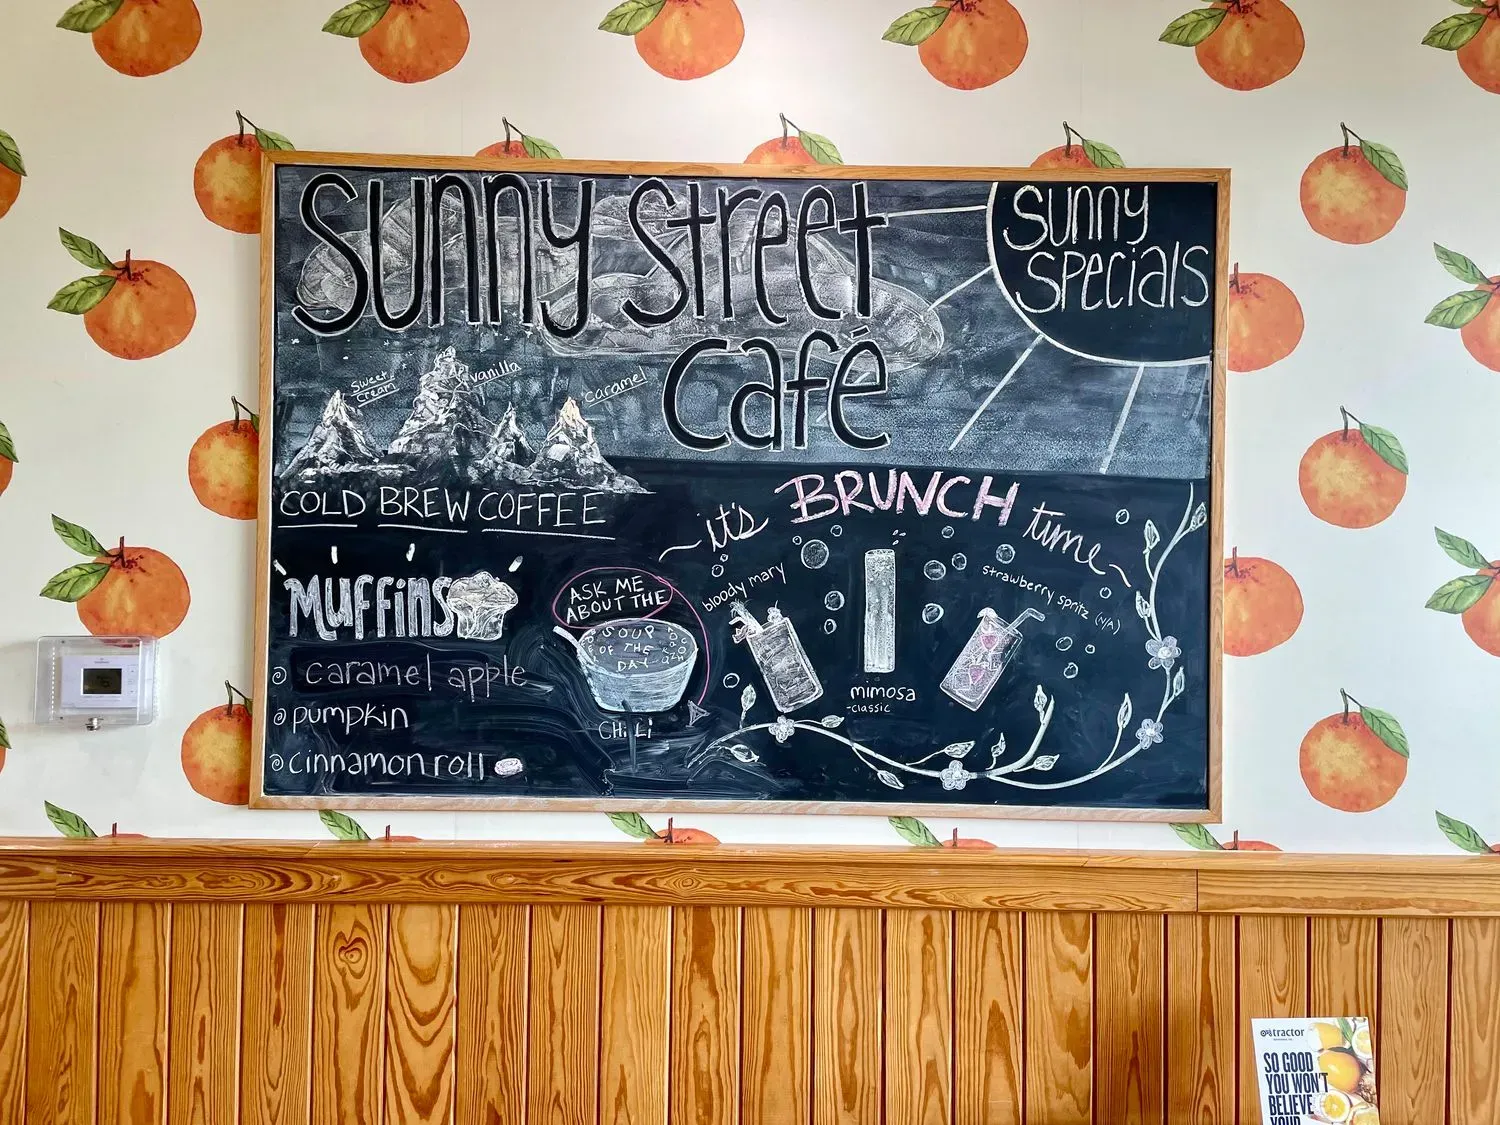 Sunny Street
Café
Sunny
Specials
Sweet
Cream
vanilla
caramel
COLD BREW COFFEE
MUFFINS
caramel apple
pumpkin
cinnamon roll
ASK ME
ABOUT THE
SOUP
OF THE
DAY
CHILI
it's BRUNCH time
bloody mary
mimosa
-classic
strawberry spritz (N/A)
tractor
SO GOOD
YOU WON'T
BELIEVE
YOUR